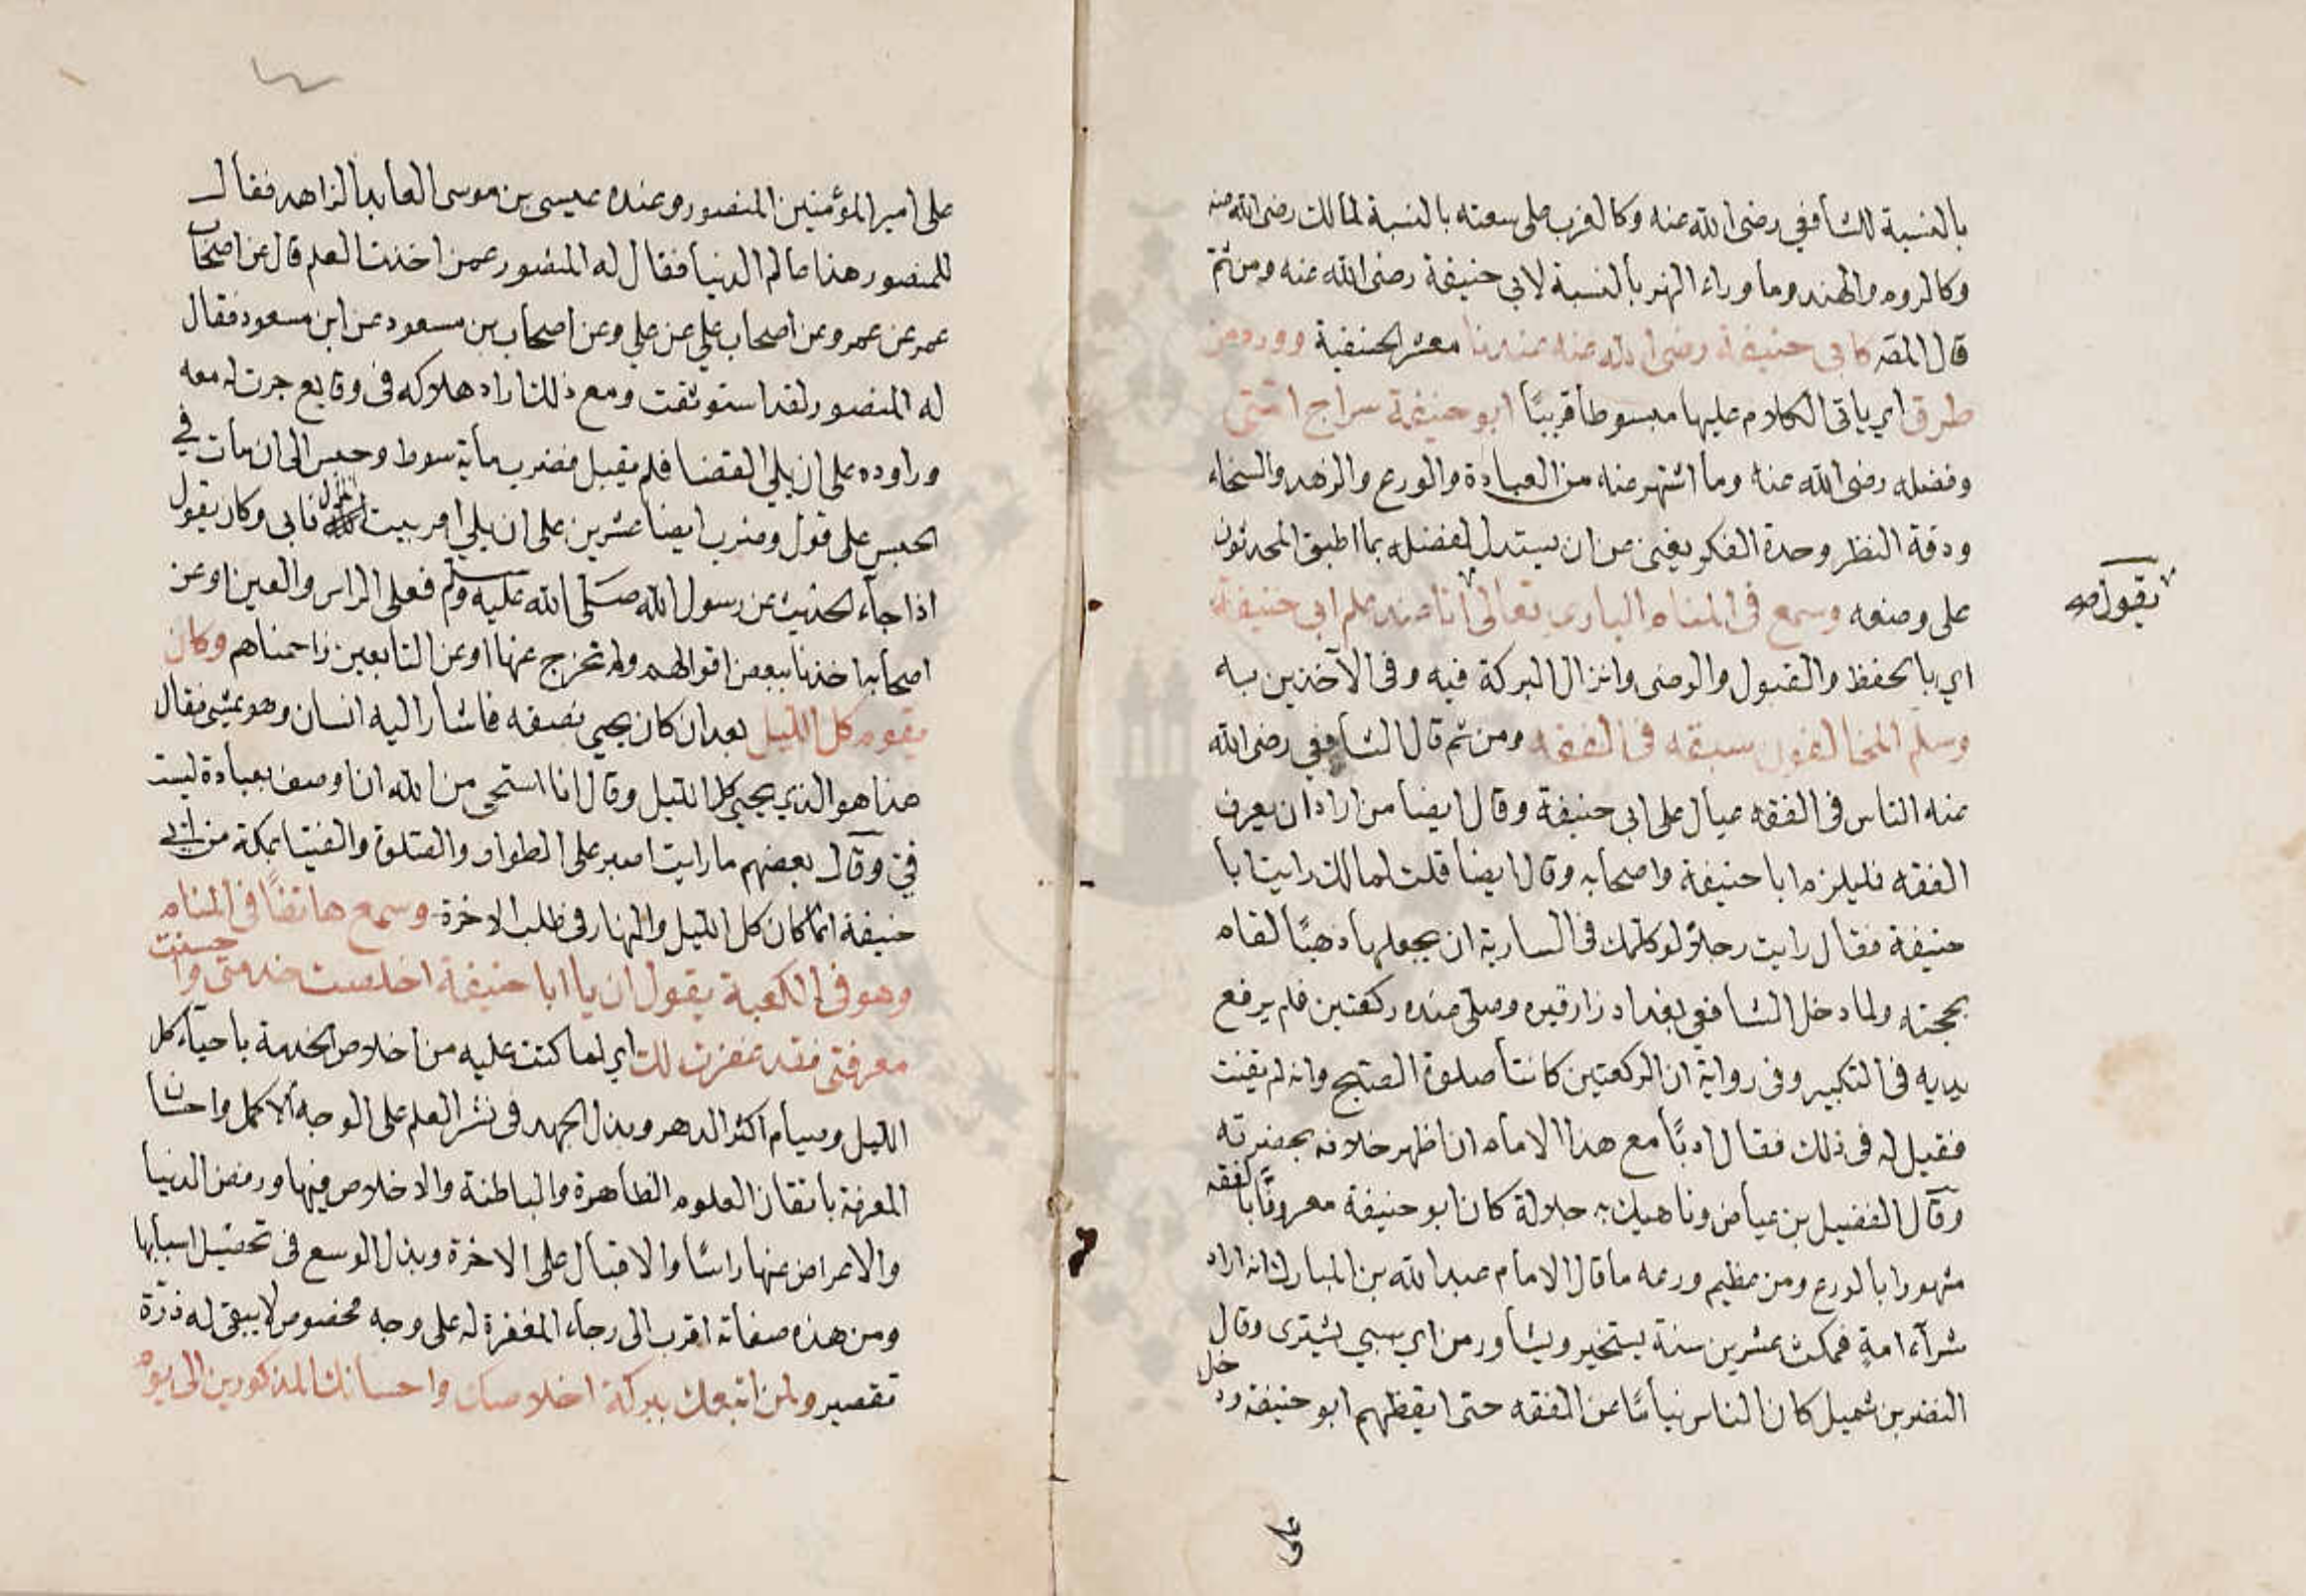 بالنسبة للشافعي رضى الله عنه وكالغرب على سعته بالنسبة لمالك رضى الله عنه
وكالروم والهند وما وراء النهر بالنسبة لابي حنيفة رضى الله عنه ومن ثم
قال المصـ كابي حنيفة رضى الله عنه عندنا معشر الحنفية وورد من
طرق اي ياتى الكلام عليها مبسوطا قريبًا ابو حنيفة سراج امتى
وفضله رضى الله عنه وما اشتهر عنه من العبادة والورع والزهد والسخاء
ودقة النظر وحدة الفكر يغنى عن ان يستدل لفضله بما اطبق المحدثون
على وضعه وسمع فى المنام البارى تعالى انا عند علم ابى حنيفة
يقول صه
اي بالحفظ والقبول والرضى وانزال البركة فيه وفى الآخذين به
وسلم المخالفون سبقه فى الفقه ومن ثم قال الشافعي رضى الله
عنه الناس فى الفقه عيال على ابى حنيفة وقال ايضا من اراد ان يعرف
الفقه فليلزم ابا حنيفة واصحابه وقال ايضا قلت لمالك رايت ابا
حنيفة فقال رايت رجلاً لو كلمك فى السارية ان يجعلها ذهبًا لقام
بحجته ولما دخل الشافعي بغداد زار قبره وصلى عنده ركعتين فلم يرفع
يديه فى التكبير وفى رواية ان الركعتين كانتا صلوة الصبح وانه لم يقنت
فقيل له فى ذلك فقال ادبًا مع هذا الامام ان اظهر خلافه بحضرته
وقال الفضيل بن عياض وناهيك به جلالة كان ابو حنيفة معروفًا بالفقه
مشهورا بالورع ومن عظيم ورعه ما قال الامام عبد الله بن المبارك انه اراد
شرآء امةٍ فمكث عشرين سنة يستخير ويشاور من اي سبي يشترى وقال
النضر بن شميل كان الناس نيامًا عن الفقه حتى ايقظهم ابو حنيفة ودخل
على
على امير المؤمنين المنصور وعنده عيسى بن موسى العابد الزاهد فقال
للمنصور هذا عالم الدنيا فقال له المنصور عمن اخذت العلم قال عن اصحاب
عمر عن عمر وعن اصحاب علي عن علي وعن اصحاب بن مسعود عن ابن مسعود فقال
له المنصور لقد استوثقت ومع ذلك اراد هلاكه فى وقايع جرت له معه
وراوده على ان يلي القضا فلم يقبل فضرب ماية سوط وحبس الى ان مات في
الحبس على قول وضرب ايضا عشرين على ان يلي امر بيت المال فابى وكان يقول
اذا جآء الحديث عن رسول الله صلى الله عليه وسلم فعلى الراس والعين او عن
اصحابه اخذنا ببعض اقوالهم ولم نخرج عنها او عن التابعين زاحمناهم وكان
يقوم كل الليل بعد ان كان يحيي نصفه فاشار اليه انسان وهو يمشى فقال
هذا هو الذي يحيي كل الليل وقال انا استحى من الله ان اوصف بعبادة ليست
فيّ وقال بعضهم ما رايت اصبر على الطواف والصلوة والفتيا بمكة من ابى
حنيفة انما كان كل الليل والنهار فى طلب الاخرة وسمع هاتفًا فى المنام
وهو فى الكعبة يقول ان يا ابا حنيفة اخلصت خدمتى واحسنت
معرفتى فقد غفرت لك اي لما كنت عليه من اخلاص الخدمة باحيآء كل
الليل وصيام اكثر الدهر وبذل الجهد فى نشر العلم على الوجه الاكمل واحسان
المعرفة باتقان العلوم الظاهرة والباطنة والاخلاص فيها ورفض الدنيا
والاعراض عنها راسًا والاقبال على الاخرة وبذل الوسع فى تحصيل اسبابها
ومن هذه صفاته اقرب الى رجاء المغفرة له على وجه مخصوص لا يبقى له ذرّة
تقصير ولمن اتبعك ببركة اخلاصك واحسانك المذكورين الى يوم